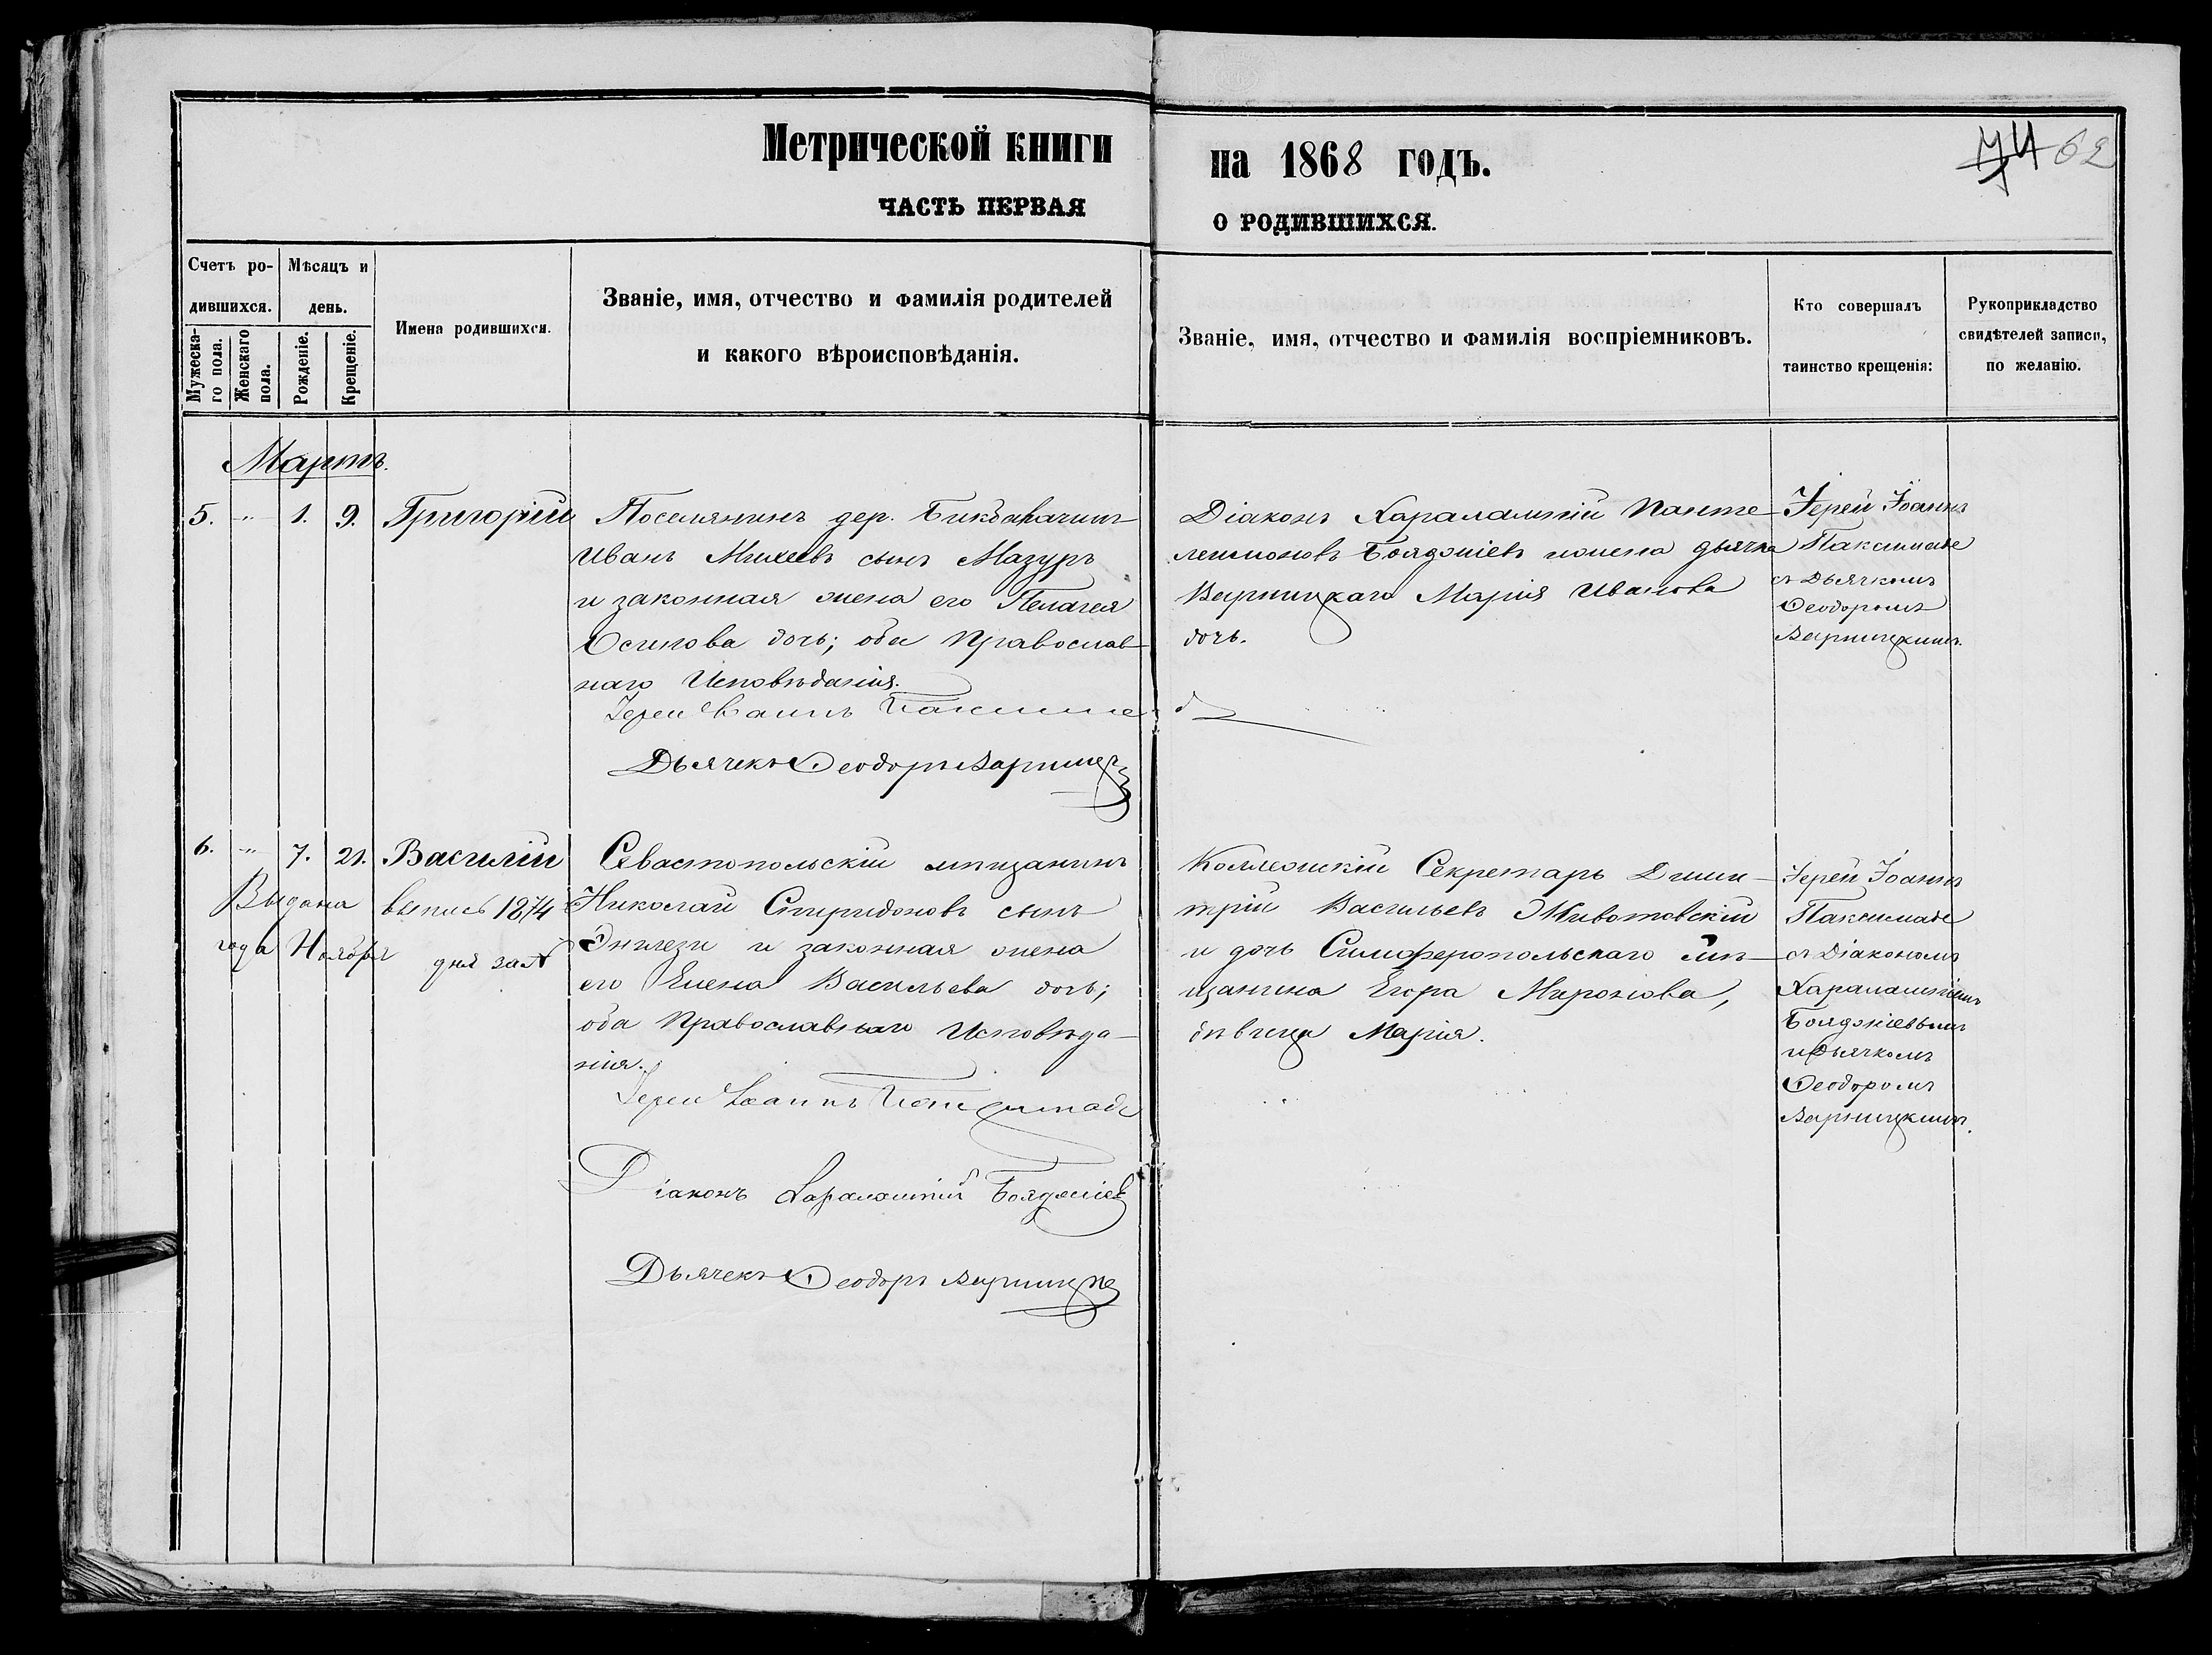 Метрической книги
ЧАСТЬ ПЕРВАЯ
на 1868 годъ.
О РОДИВШИХСЯ.
74 62
Счетъ ро-
дившихся.
Мужеска-
го пола.
Женскаго
пола.
Мѣсяцъ и
день.
Рожденіе.
Крещеніе.
Имена родившихся.
Званіе, имя, отчество и фамилія родителей
и какого вѣроисповѣданія.
Званіе, имя, отчество и фамилія воспріемниковъ.
Кто совершалъ
таинство крещенія:
Рукоприкладство
свидѣтелей записи,
по желанію.
Мартъ.
5. „ 1. 9. Григорій
Поселянинъ дер.
Иванъ Михеевъ сынъ Мазуръ
и законная жена его Пелагея
Осипова дочь; оба Православ-
наго Исповѣданія.
Іерей Іоаннъ Паксимаде
Дьячекъ Ѳеодоръ Варницкій
Діаконъ Харалампій Панте-
леимоновъ Бояджіевъ и жена дьячка
Варницкаго Марія Иванова
дочь.
Іерей Іоаннъ
Паксимаде
съ Дьячкомъ
Ѳеодоромъ
Варницкимъ.
6. „ 7. 21. Василій
Выдана выпись 1874
года Ноября дня за №
Севастопольскій мѣщанинъ
Николай Спиридоновъ сынъ
и законная жена
его Елена Васильева дочь;
оба Православнаго Исповѣда-
нія.
Іерей Іоаннъ Паксимаде
Діаконъ Харалампій Бояджіевъ
Дьячекъ Ѳеодоръ Варницкій
Коллежскій Секретарь Дими-
трій Васильевъ Животовскій
и дочь Симферопольскаго мѣ-
щанина Егора Миронова,
дѣвица Марія.
Іерей Іоаннъ
Паксимаде
съ Діакономъ
Харалампіемъ
Бояджіевымъ
и Дьячкомъ
Ѳеодоромъ
Варницкимъ.